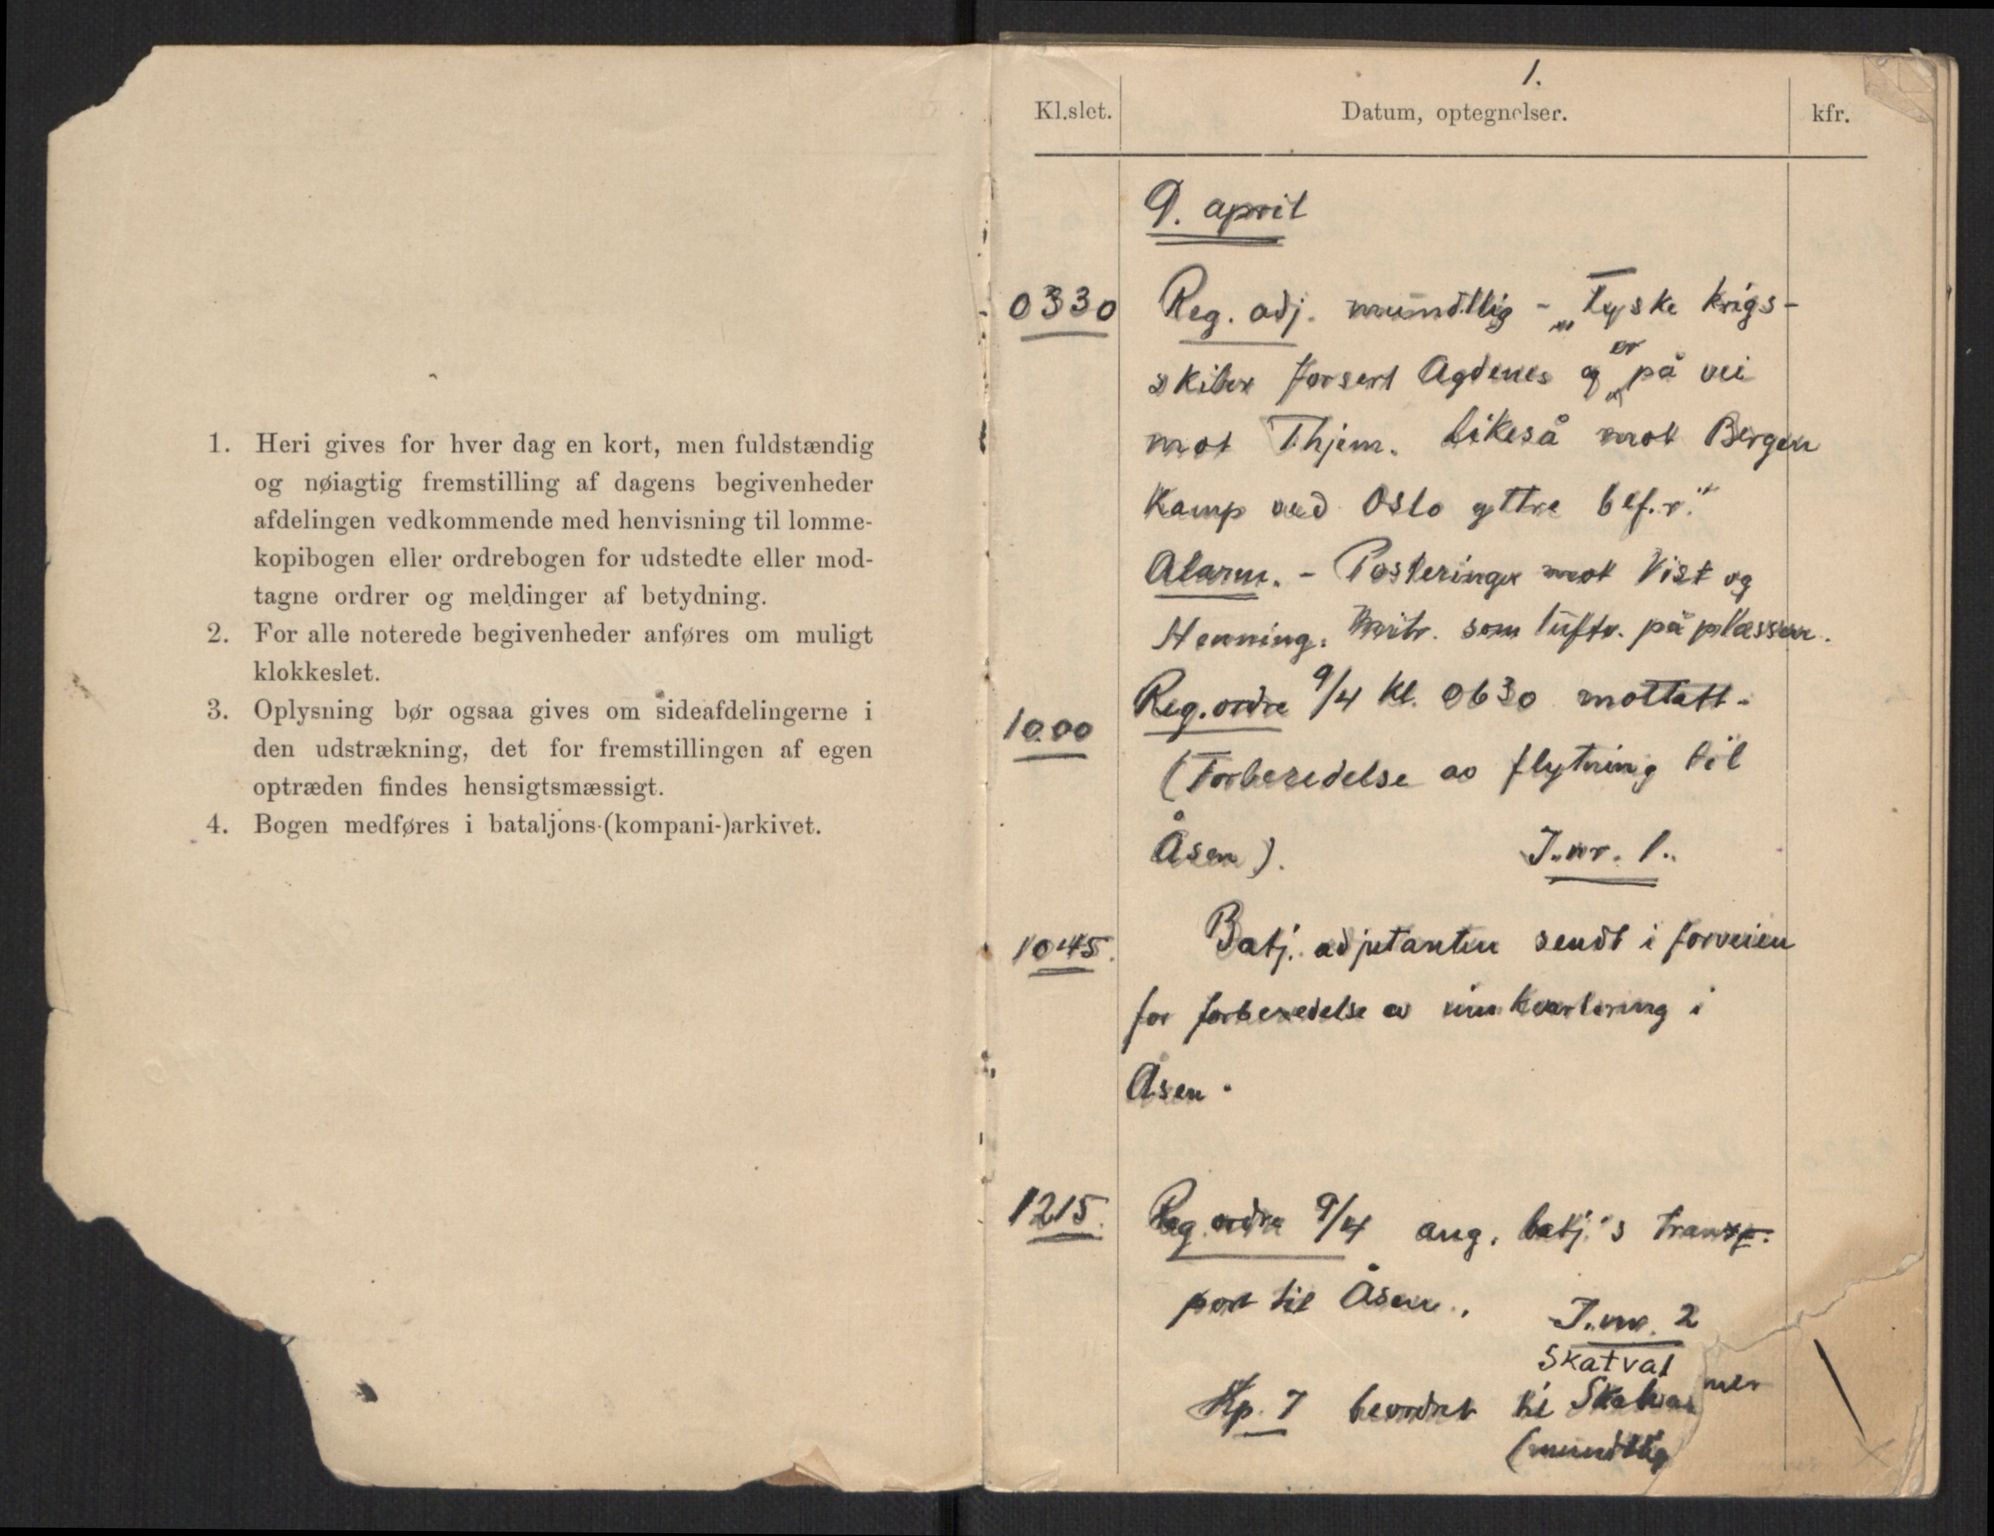 1. Heri gives for hver dag en kort, men fuldstændig
og nøiagtig fremstilling af dagens begivenheder
afdelingen vedkommende med henvisning til lomme-
kopibogen eller ordrebogen for udstedte eller mod-
tagne ordrer og meldinger af betydning.
2. For alle noterede begivenheder anføres om muligt
klokkeslet.
3. Oplysning bør ogsaa gives om sideafdelingerne i
den udstrækning, det for fremstillingen af egen
optræden findes hensigtsmæssigt.
4. Bogen medføres i bataljons-(kompani-)arkivet.
1.
Kl.slet. Datum, optegnelser. kfr.
9. april
0330 Reg. adj. mundtlig - „Tyske krigs-
skiber forsert Agdenes og er på vei
mot Thjem. Likeså mot Bergen
Kamp ved Oslo yttre bef.r."
Alarm. - Posteringer mot Vist og
Henning. Mitr. som luftv. på plassen.
1000 Reg. ordre 9/4 kl. 0630 mottatt.
(Forberedelse av flytning til
Åsen). J.nr. 1.
1045. Batj. adjutanten sendt i forveien
for forberedelse av innkvartering i
Åsen.
1215. Reg. ordre 9/4 ang. batj.'s transp.
port til Åsen. J.nr. 2
Skatval
Kp. 7 beordret til Skatval
(mundtlig